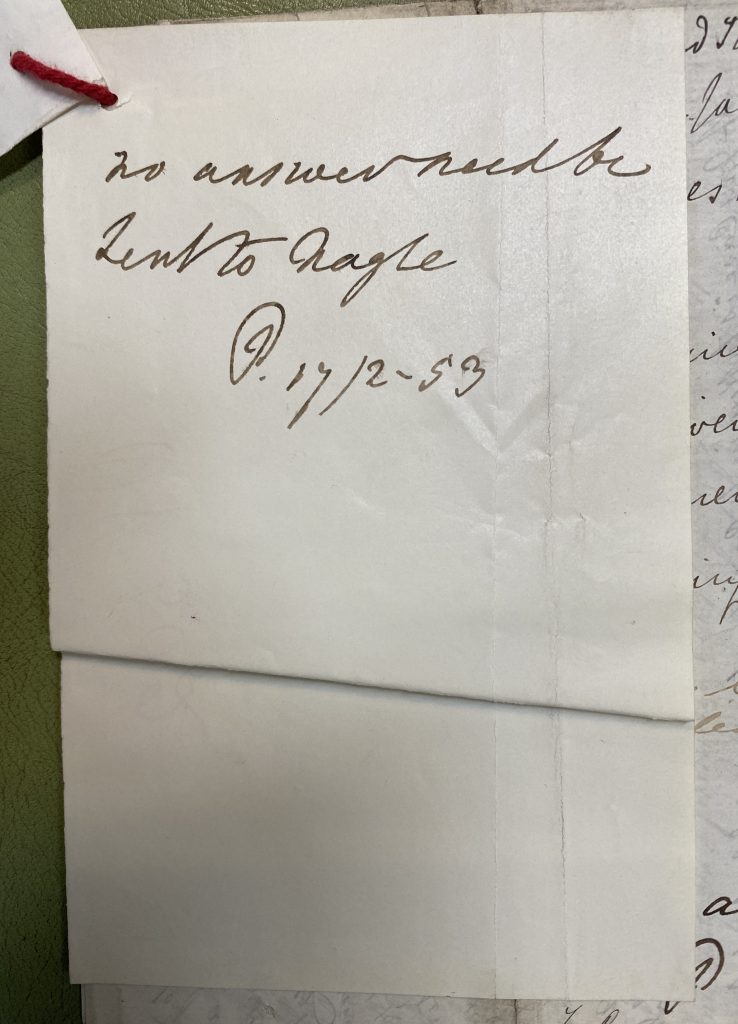 no answer need be
sent to Nagle
P. 17/2-53